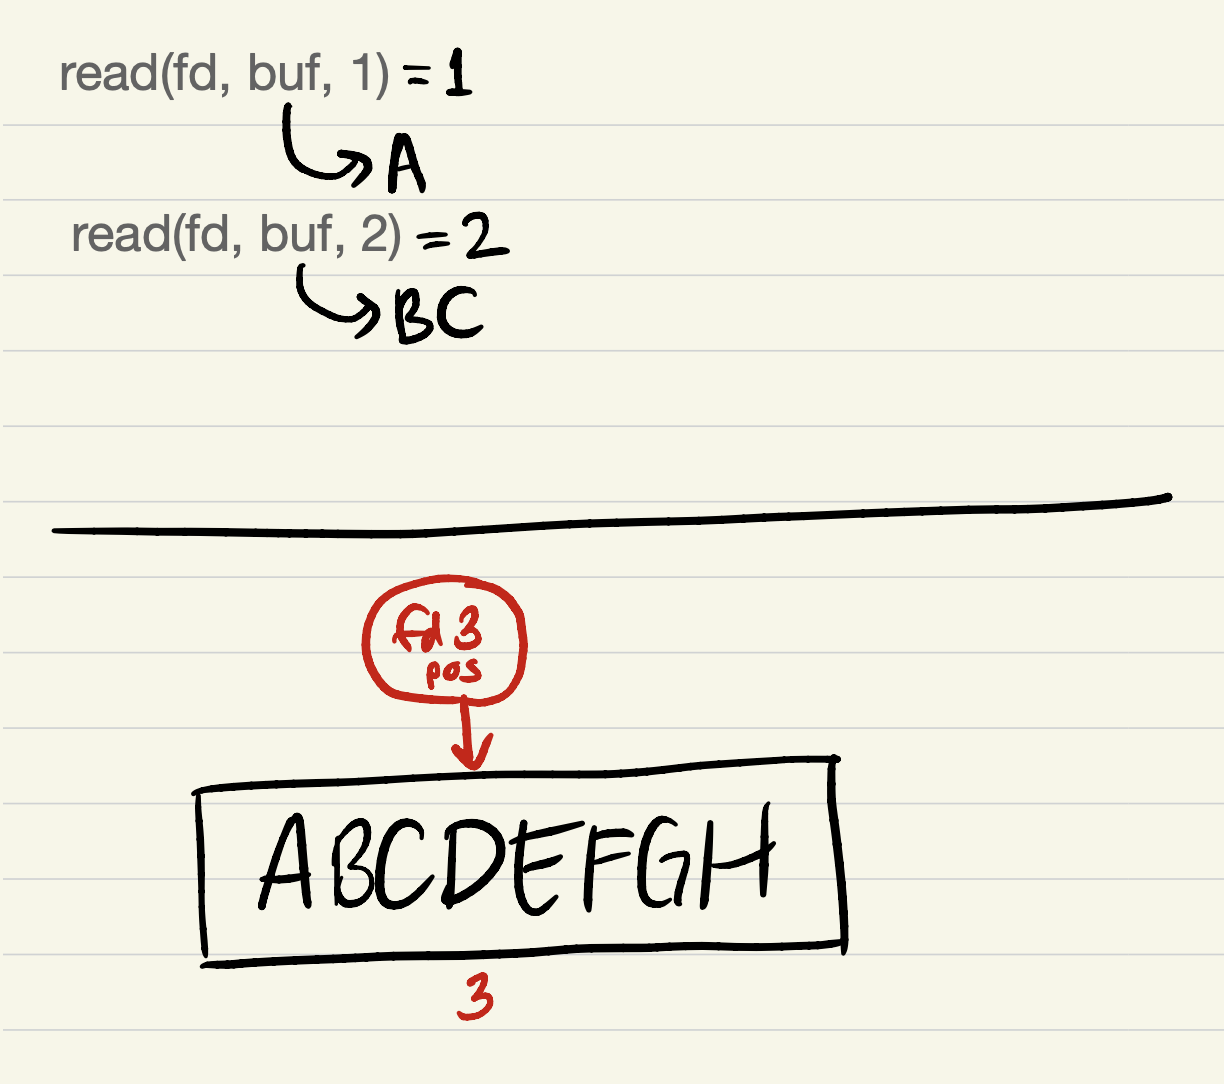 read(fd, buf, 1) = 1
A
read(fd, buf, 2) = 2
BC
fd 3
pos
ABCDEFGH
3